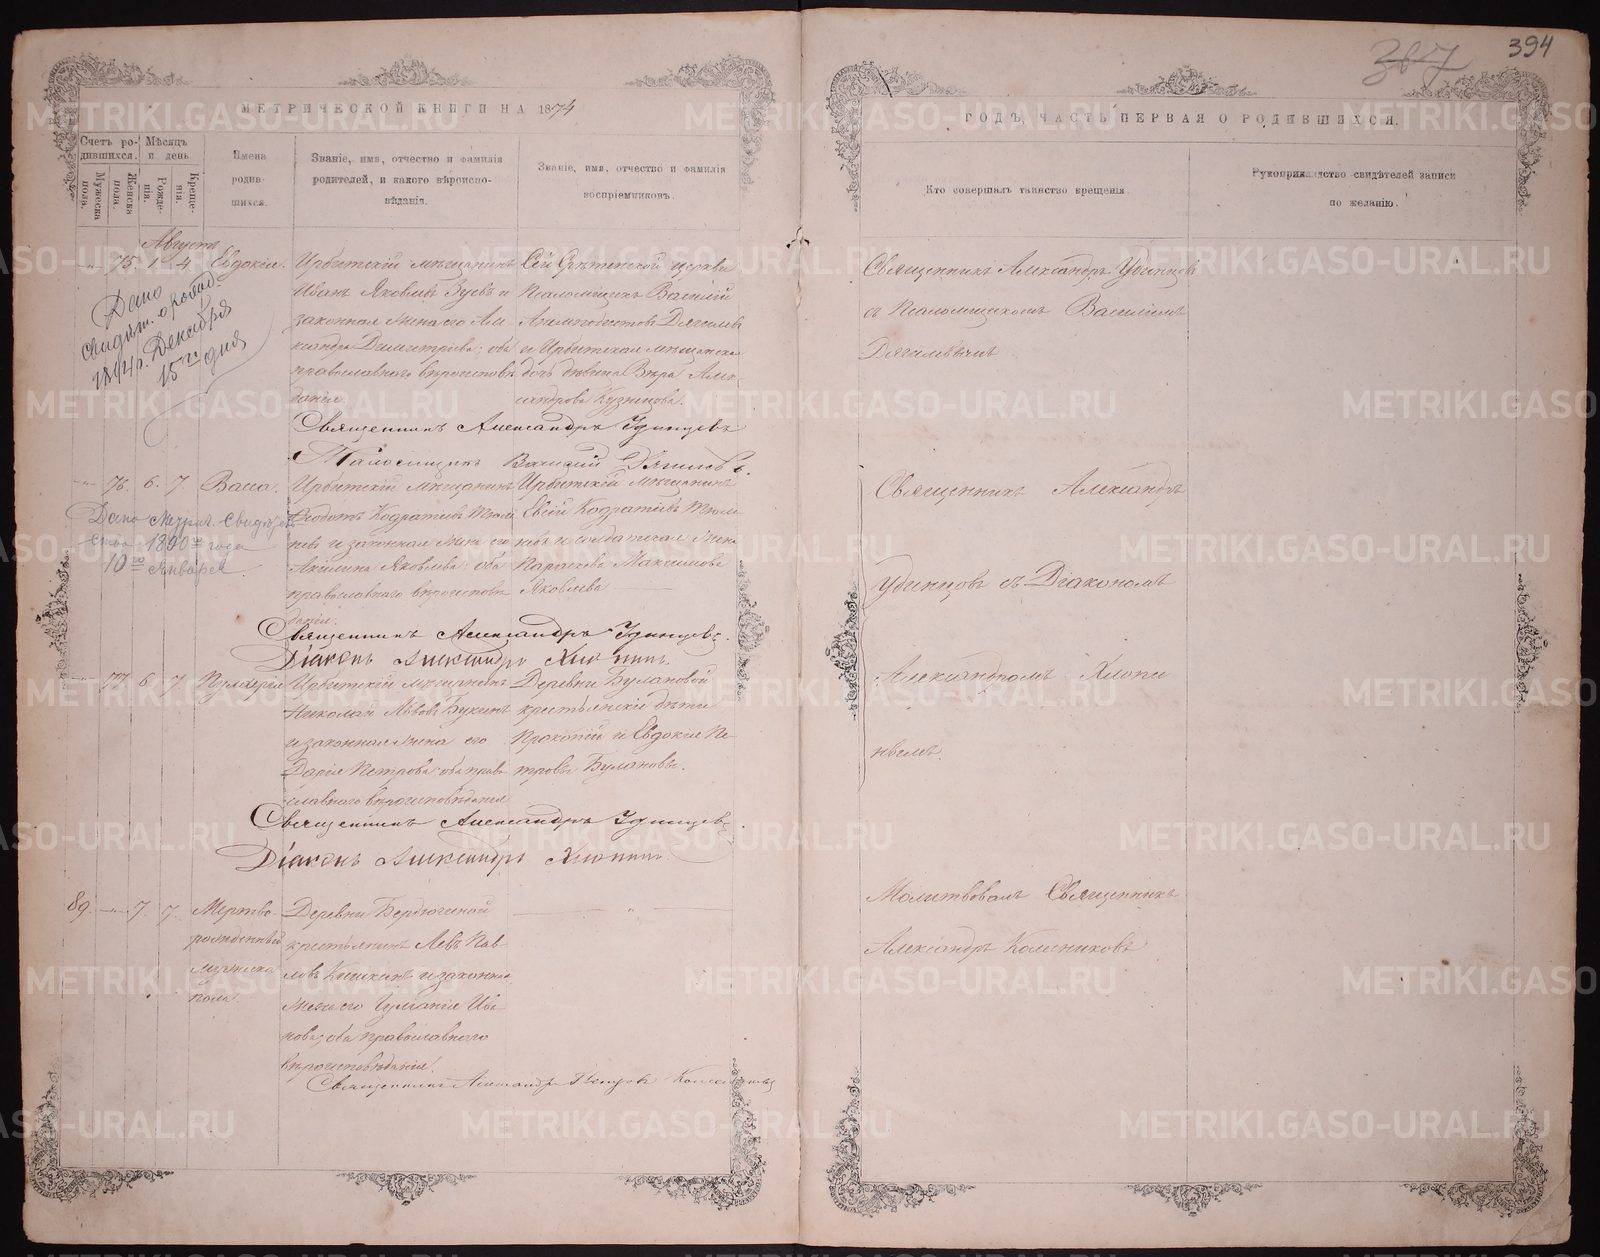 394
МЕТРИЧЕСКОЙ КНИГИ НА 1874
ГОДЪ, ЧАСТЬ ПЕРВАЯ О РОДИВШИХСЯ.
Счетъ ро-
дившихся.
Мужеска
пола.
Женска
пола.
Мѣсяцъ
и день
Рожде-
нія.
Креще-
нія.
Имена
родив-
шихся.
Званіе, имя, отчество и фамилія
родителей, и какого вѣроиспо-
вѣданія.
Званіе, имя, отчество и фамилія
воспріемниковъ.
Кто совершалъ таинство крещенія
Рукоприкладство свидѣтелей записи
по желанію.
Августа
75 1. 4. Евдокія.
Дано
свидѣт.
Декабря
15го дня
Ирбитскій мѣщанинъ
Иванъ Яковлевъ Зуевъ и
законная жена его Але-
ксандра Димитріева; оба
православнаго вѣроиспов
данія.
Сей Срѣтенской церкви
Псаломщикъ Василій
Дягилевъ
и Ирбитская мѣщанска
дочь дѣвица Вѣра Алек-
сандрова Кузнецова.
Священникъ Александръ Удинцовъ
съ Псаломщикомъ Василіемъ
Дягилевымъ
Священникъ Александръ Удинцовъ
Псаломщикъ Василій Дягилевъ.
76. 6. 7. Васса.
Дано метрич. свидѣтель
ство 1890го года
10го Января
Ирбитскій мѣщанинъ
Ѳеодотъ Кодратьевъ Тюле
невъ и законная жена его
Акилина Яковлева: оба
православнаго вѣроисповѣ
данія.
Ирбитскій мѣщанинъ
Евсей Кодратьевъ Тюле
невъ и солдатская жена
Параскева Максимова
Яковлева
Священникъ Александръ
Удинцовъ съ Діакономъ
Александромъ Хлопи
нымъ.
Священникъ Александръ Удинцовъ.
Діаконъ Александръ Хлопинъ.
77 6 7. Пульхерія
Ирбитскій мѣщанинъ
Николай Львовъ Букинъ
и законная жена его
Дарія Петрова: оба право
славнаго вѣроисповѣданія
Деревни Булановой
крестьянскіе дѣти
Прокопій и Евдокія Пе-
тровы Булановы.
Священникъ Александръ Удинцовъ
Діаконъ Александръ Хлопинъ.
89. — 7. 7. Мертво-
рожденный
мужеска
пола.
Деревни Бердюгиной
крестьянинъ Левъ Пав-
ловъ Кишкинъ и законная
жена его Іуліанія Ива-
нова; оба православнаго
вѣроисповѣданія.
Молитвовалъ Священникъ
Александръ Колесниковъ
Священникъ Александръ Петровъ Колесниковъ
METRIKI.GASO-URAL.RU